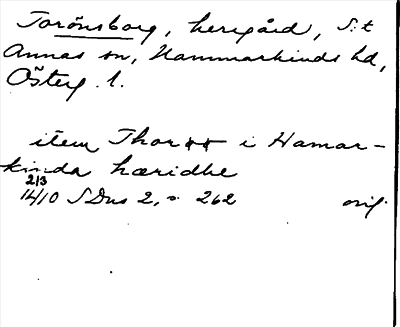 Torönsborg, herrgård, S:t
Annas sn, Hammarkinds hd,
Österg. l.
item Thorøø i Hamar-
kinda hæridhe
2/3
1410 SDns 2, s. 262 orig.